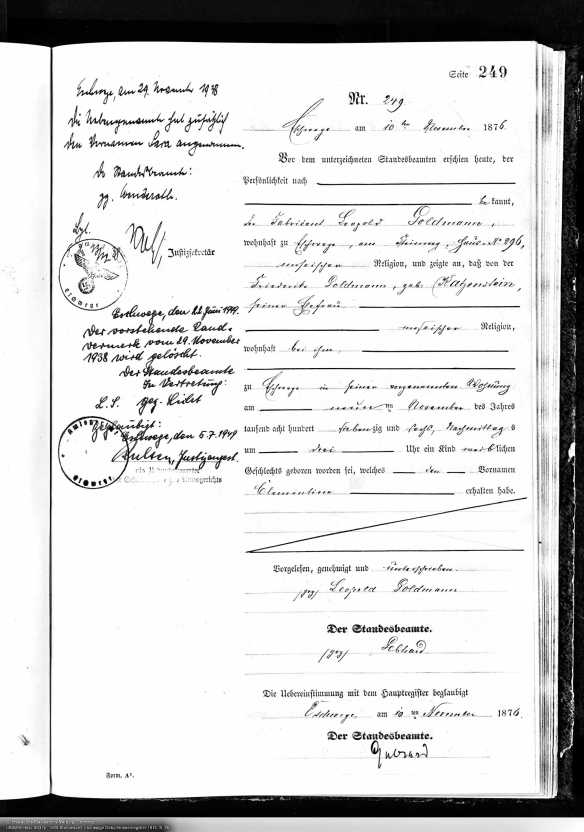 Seite 249
Nr. 249
Eschwege am 10ten November 1876.
Vor dem unterzeichneten Standesbeamten erschien heute, der
Persönlichkeit nach
bekannt,
der Fabrikant Leopold Goldmann,
wohnhaft zu Eschwege, am Haus No 296,
mosaischer Religion, und zeigte an, daß von der
Friederike Goldmann, geb. Katzenstein,
seiner Ehefrau
mosaischer Religion,
wohnhaft bei ihm,
zu Eschwege in seiner vorgenannten Wohnung
am neunten November des Jahres
tausend acht hundert siebenzig und sechs, Nachmittags
um drei Uhr ein Kind weiblichen
Geschlechts geboren worden sei, welches den Vornamen
Clementine erhalten habe.
Vorgelesen, genehmigt und unterschrieben.
(gez) Leopold Goldmann
Der Standesbeamte.
(gez) Gebhard
Die Uebereinstimmung mit dem Hauptregister beglaubigt
Eschwege am 10ten November 1876
Der Standesbeamte.
Gebhard
Form. A¹.
Eschwege, am 29. November 1938
Die Nebengenannte hat zusätzlich
den Vornamen Sara angenommen.
Der Standesbeamte:
gez.
Bgl.
Justizsekretär
Eschwege, den 22. Juni 1949.
Der vorstehende Rand-
vermerk vom 29. November
1938 wird gelöscht.
Der Standesbeamte
In Vertretung:
L. S. gez.
Beglaubigt:
Eschwege, den 5.7.1949
Justizangest.